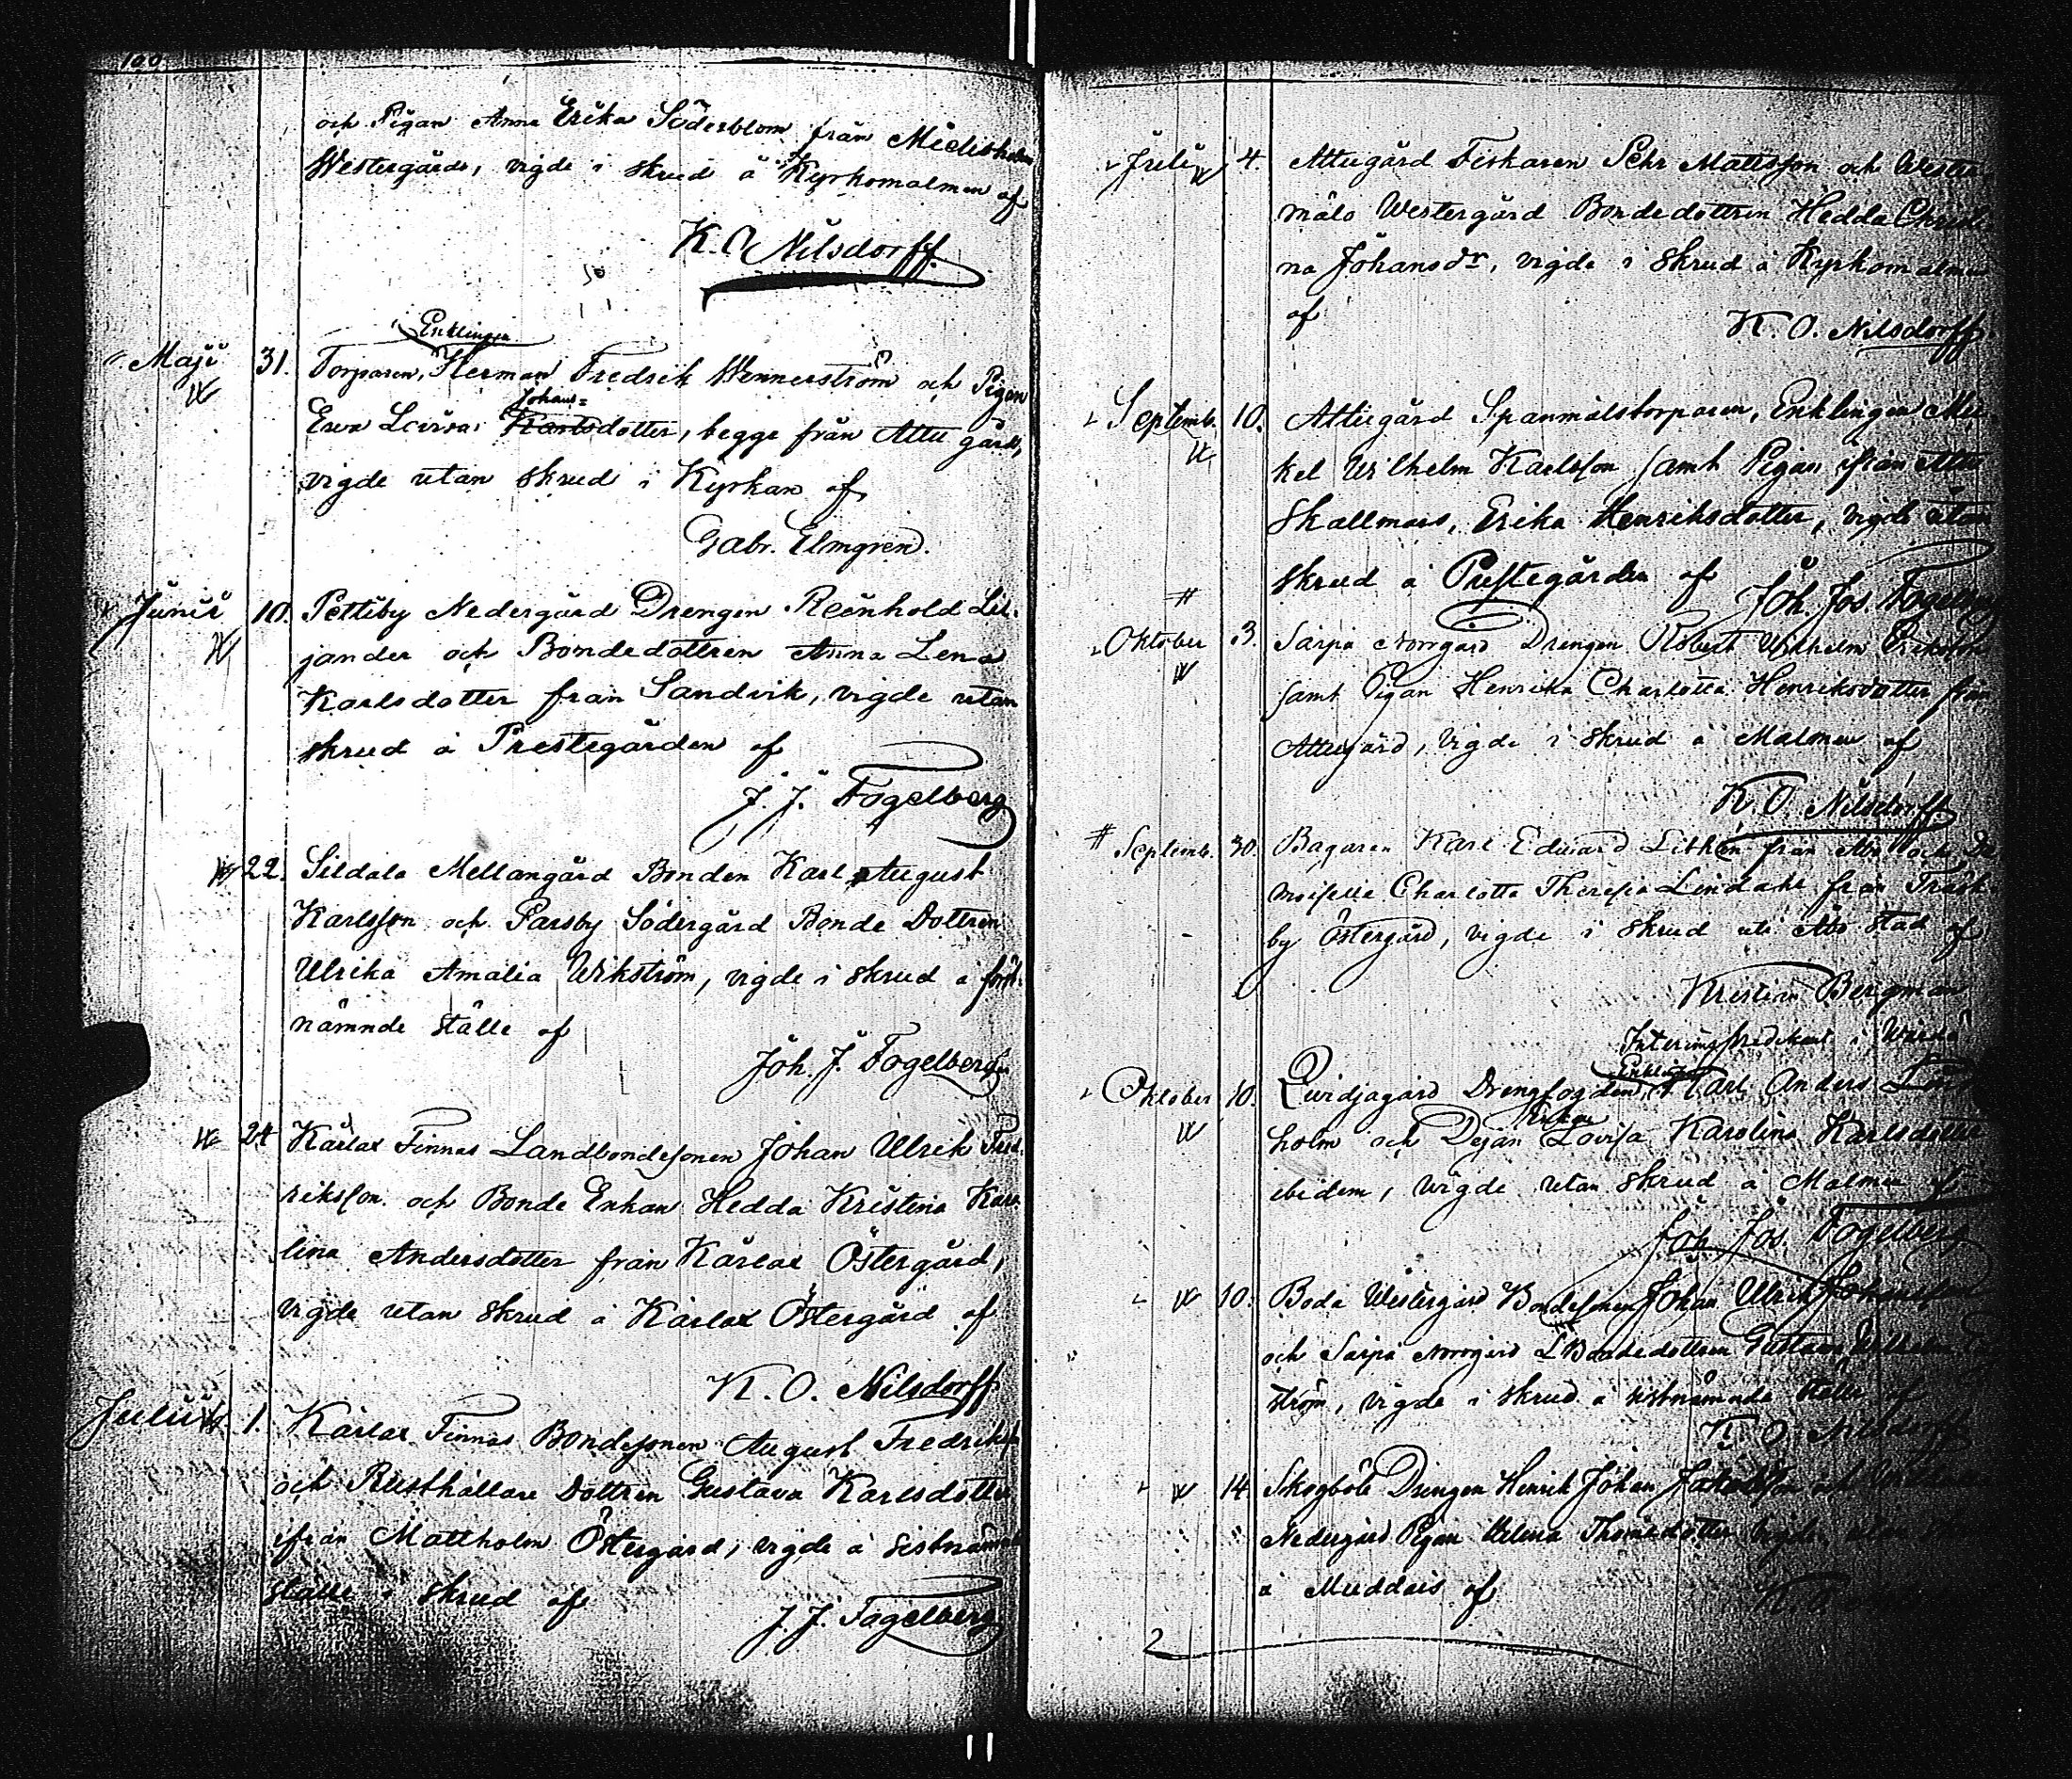 160.
och Pigan Anna Erika Söderblom från Mielisholm
Westergård, vigde i skrud å Kyrkomalmen af
K. O. Nilsdorff.
Enklingen
Maji 31. Torparen, Herman Fredrik Wennerström och Pigan
Johans=
Eva Lovisa Karlsdotter, begge från Attu gård,
vigde utan skrud i Kyrkan af
Gabr. Elmgren.
Junii 10. Pettiby Nedergård Drengen Reinhold Lil-
jander och Bondedottren Anna Lena
Karlsdotter från Sandvik, vigde utan
skrud å Prestegården af
J. J. Fogelberg
22. Sildala Mellangård Bonden Karl August
Karlsson och Parsby Södergård Bonde Dottren
Ulrika Amalia Wikström, vigde i skrud å först-
nämnde ställe af
Joh. J. Fogelberg
24 Kärlax Finnas Landbondesonen Johan Ulrik Fred-
riksson och Bonde Enkan Hedda Kristina Karo-
lina Andersdotter från Kärlax Östergård,
vigde utan skrud å Kärlax Östergård af
K. O. Nilsdorff
Julii 1. Kärlax Finnas Bondesonen August Fredriksson
och Rusthållare Dottren Gustava Karlsdotter
ifrån Mattholm Östergård, vigde å sistnämnde
ställe i skrud af
J. J. Fogelberg
Juli 4. Attugård Fiskaren Pehr Mattsson och Westra
målo Westergård Bondedottren Hedda Christi
na Johansdr, vigde i skrud å Kyrkomalmen
af
K. O. Nilsdorff.
Septemb. 10. Attugård Spanmålstorparen, Enklingen Mi
kel Wilhelm Karlsson samt Pigan ifrån Attu
Skallmars, Erika Henriksdotter, vigde utan
skrud å Prestegården af
Joh. Jos. Fogelberg
# Oktober 3. Sarpa Norrgård Drengen Robert Wilhelm Eriksson
samt Pigan Henrika Charlotta Henriksdotter från
Attugård, vigde i skrud å Malmen af
K. O. Nilsdorff
# Septemb. 30. Bagaren Karl Eduard Lithén från Åbo och De
moiselle Charlotta Theresia Lindahl från Träsk-
by Östergård, vigde i skrud uti Åbo stad af
Kristian Bergman
Interimspredikant i
Enklingen
Oktober 10. Qvidjagård Drengfogden, Karl Anders Lind
Enkan
holm och Dejan Lovisa Karolina Karlsdotter
ibidem, vigde utan skrud å Malmen af
Joh. Jos. Fogelberg
10. Boda Westergård Bondesonen Johan Ulrik Johansson
och Sarpa Norrgård L Bondedottren Gustava Wilhelmina
ström, vigde i skrud å sistnämnde ställe af
K. O. Nilsdorff
14 Skogböle Drengen Henrik Johan och
Nedergård Pigan Helena Thomasdotter vigde
å Muddais af
K. O.